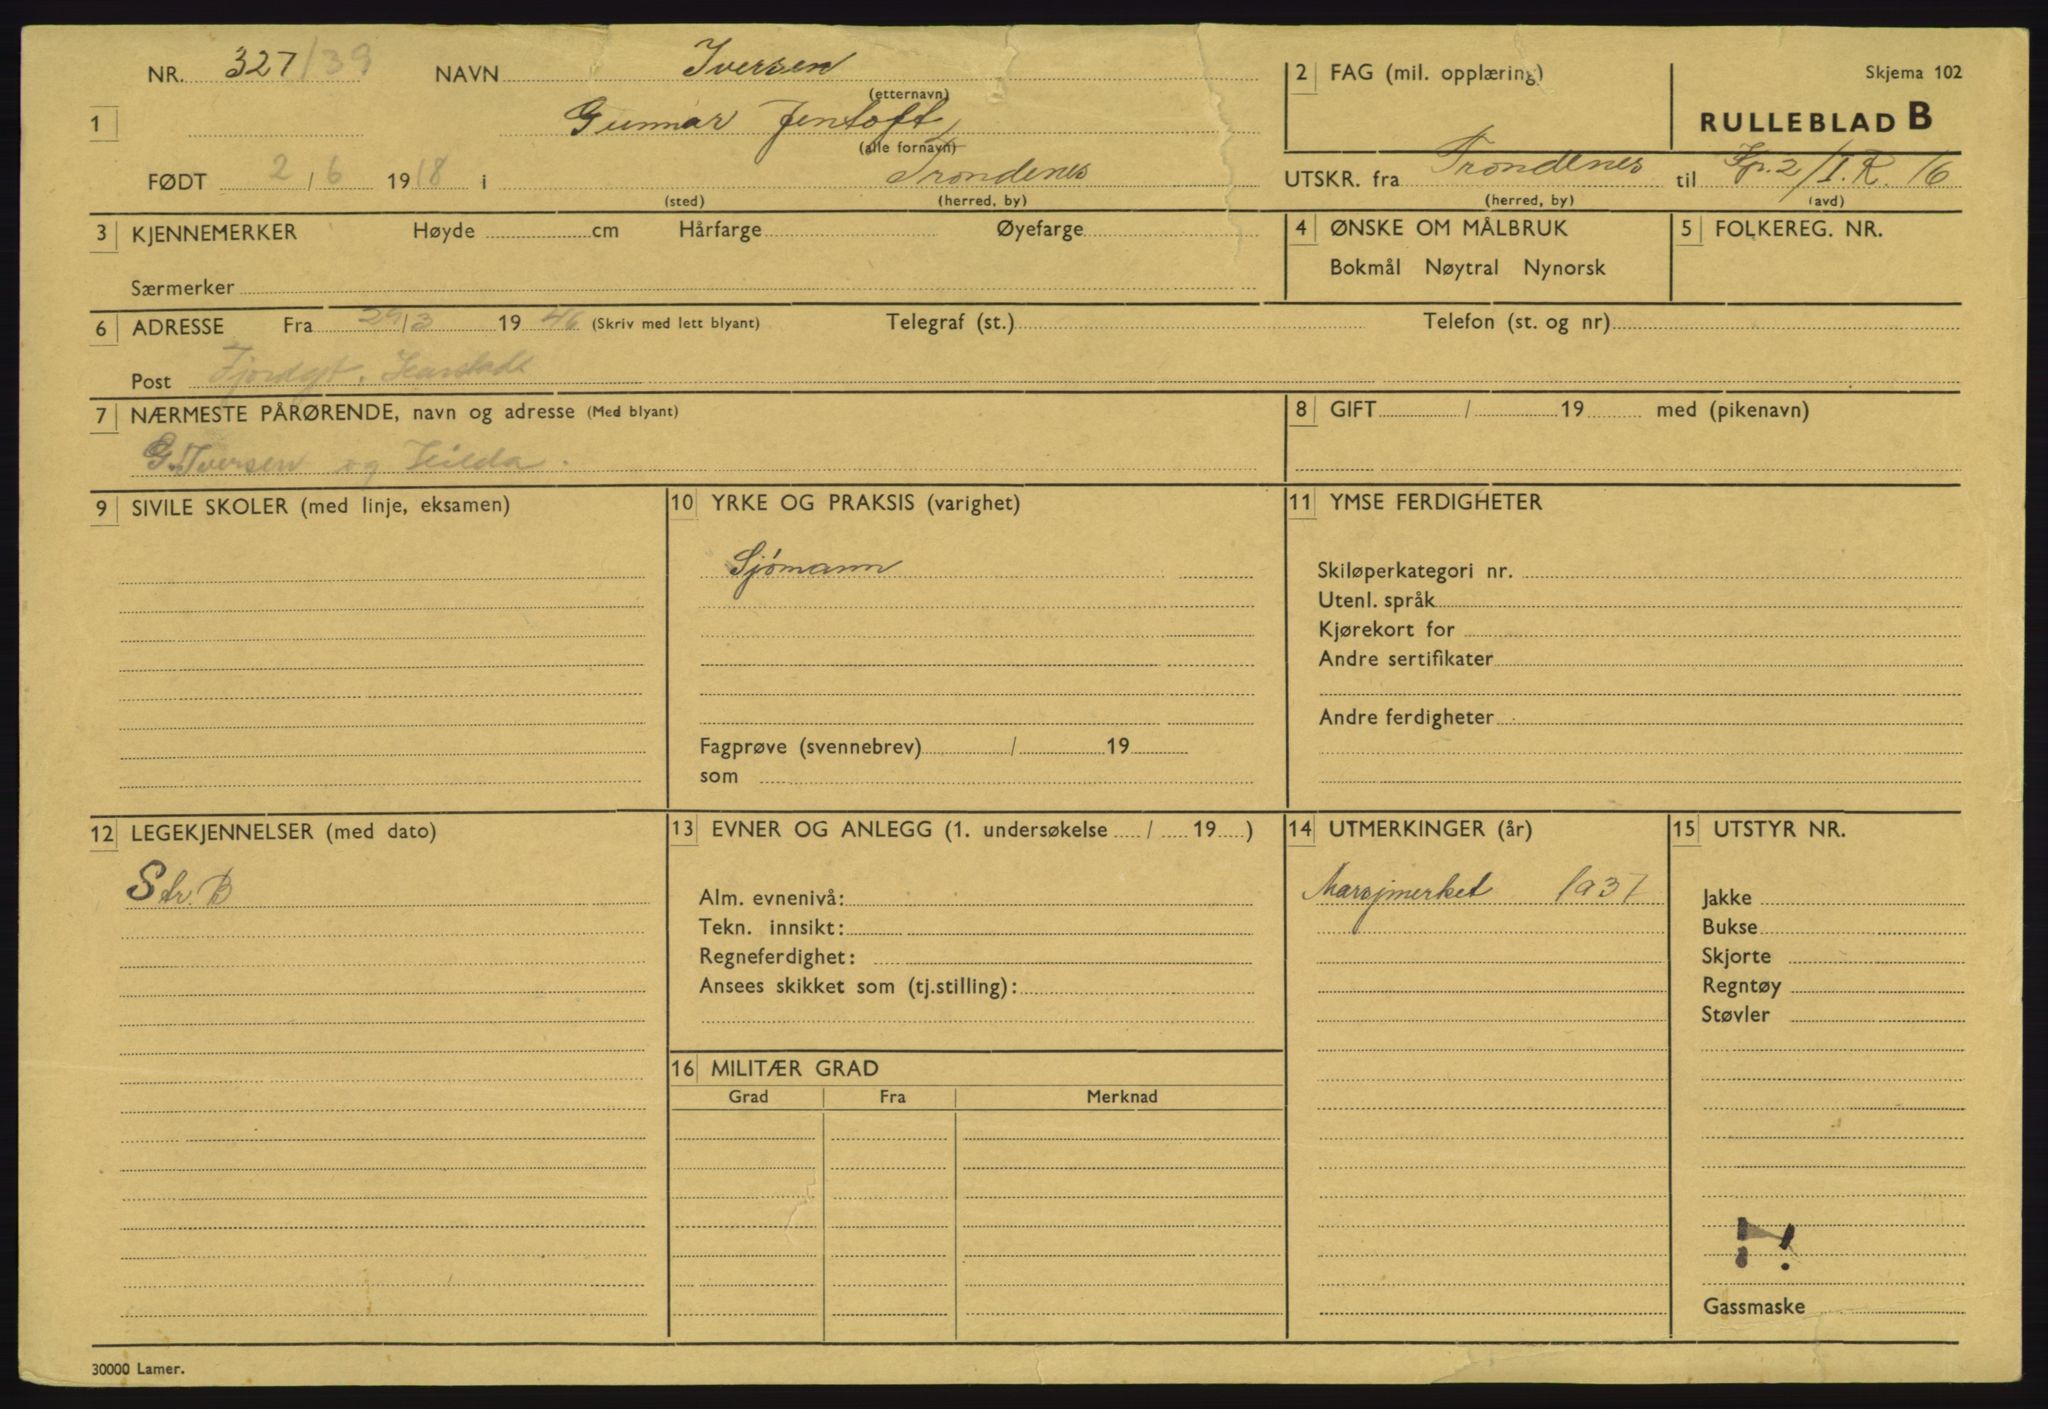 NR. 327/39 NAVN Iversen
(etternavn)
1 Gunnar Jentoft
(alle fornavn)
FØDT 2/6 1918 i Trondenes
(sted) (herred, by)
2 FAG (mil. opplæring)
Skjema 102
RULLEBLAD B
UTSKR. fra Trondenes til Kp. 2/I.R. 16
(herred, by) (avd)
3 KJENNEMERKER Høyde cm Hårfarge Øyefarge
Særmerker
4 ØNSKE OM MÅLBRUK
Bokmål Nøytral Nynorsk
5 FOLKEREG. NR.
6 ADRESSE Fra 29/3 1946 (Skriv med lett blyant) Telegraf (st.) Telefon (st. og nr)
Post Fjordgt. Harstad
7 NÆRMESTE PÅRØRENDE, navn og adresse (Med blyant)
G. Iversen og Hilda.
8 GIFT / 19 med (pikenavn)
9 SIVILE SKOLER (med linje, eksamen)
10 YRKE OG PRAKSIS (varighet)
Sjømann
Fagprøve (svennebrev) / 19
som
11 YMSE FERDIGHETER
Skiløperkategori nr.
Utenl. språk
Kjørekort for
Andre sertifikater
Andre ferdigheter
12 LEGEKJENNELSER (med dato)
Str. B
13 EVNER OG ANLEGG (1. undersøkelse / 19 )
Alm. evnenivå:
Tekn. innsikt:
Regneferdighet:
Ansees skikket som (tj.stilling):
14 UTMERKINGER (år)
Marsjmerket 1937
15 UTSTYR NR.
Jakke
Bukse
Skjorte
Regntøy
Støvler
Gassmaske
16 MILITÆR GRAD
Grad Fra Merknad
30000 Lamer.